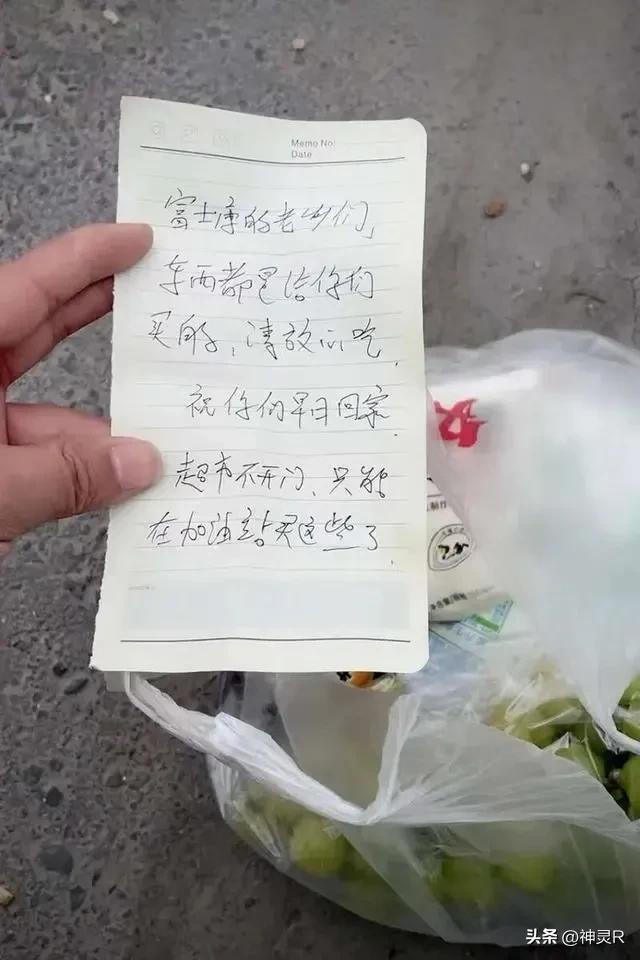 Memo No.
Date
富士康的老乡们,
东西都是给你们
买的,请放心吃.
祝你们早日回家.
超市不开门、只能
在加油站买这些了.
好
头条 @神灵R